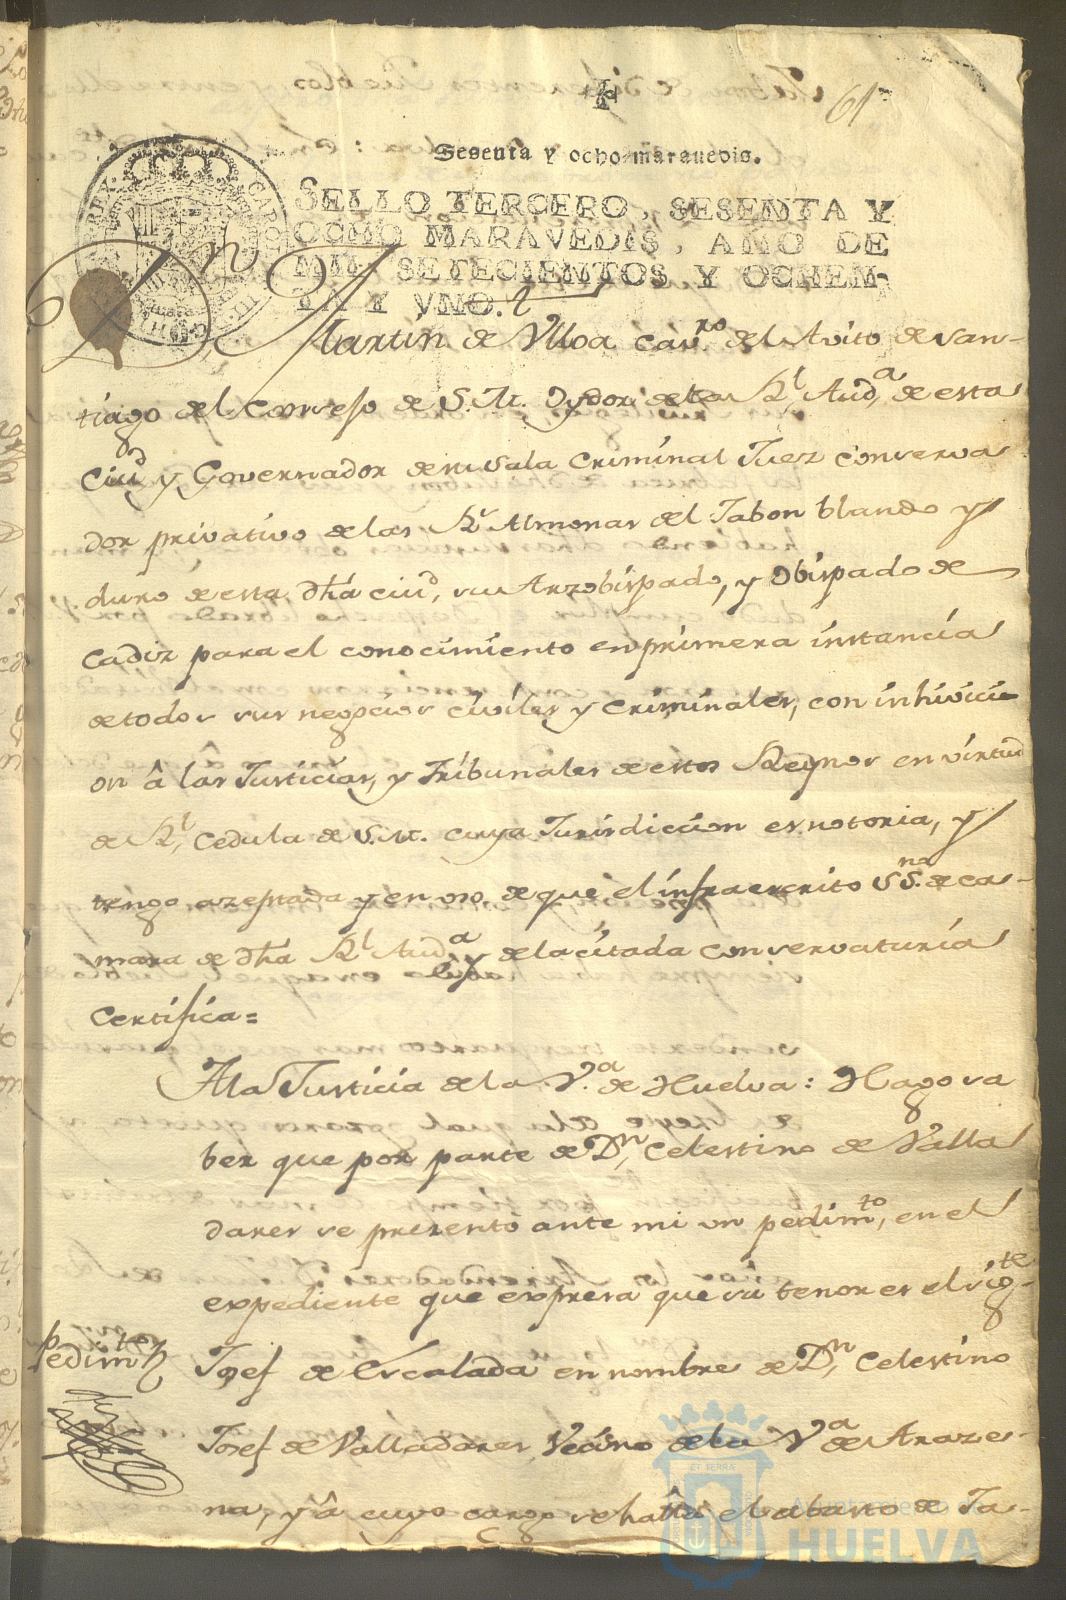 61
Sesenta y ocho maravedis.
SELLO TERCERO, SESENTA Y
OCHO MARAVEDIS, AÑO DE
MIL SETECIENTOS Y OCHEN-
TA Y VNO.
Dn Martin de Vlloa Cavro. del Avito de San-
tiago del Consejo de S.M. Oydor de la Rl. Auda. de esta
Ciud. y Governador de su Sala Criminal Juez Conserva
dor privativo de las Rs. Almonas del Jabon blando y
duro de esta dha ciud, su Arzobispado, y Obispado de
Cadiz para el conocimiento en primera instancia
de todos sus negocios civiles y criminales, con inhivici
on â las Justicias, y Tribunales de estos Reynos en virtud
de Rl. Cedula de S.M. cuya Jurisdiccion es notoria, y
tengo azeptada y en uso de que el infraescrito SSno. de ca-
mara de dha Rl. Auda. y de la citada conservaturia
Certifica=
A la Justicia de la Va. de Huelva: Hago sa
ber que por parte de Dn. Celestino de Valla
dares se presentó ante mi un pedimto, en el
expediente que expresa que su tenor es el sigte-
Pedimto
Josef de Escalada en nombre de Dn. Celestino
Josef de Valladares, Vecino de la Va. de Araze-
na, y â cuyo cargo se halla el abasto de Ja-
Ayuntamiento de
HUELVA